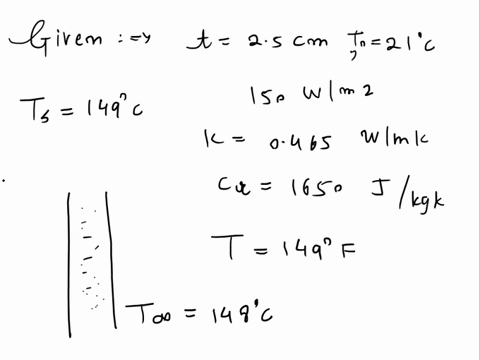 Given :=> t = 2.5 cm, Tn = 21°C
Ts = 149°C
150 W/m2
K = 0.465 W/mk
Cr = 1650 J/kgk
T = 149°F
T∞ = 149°C